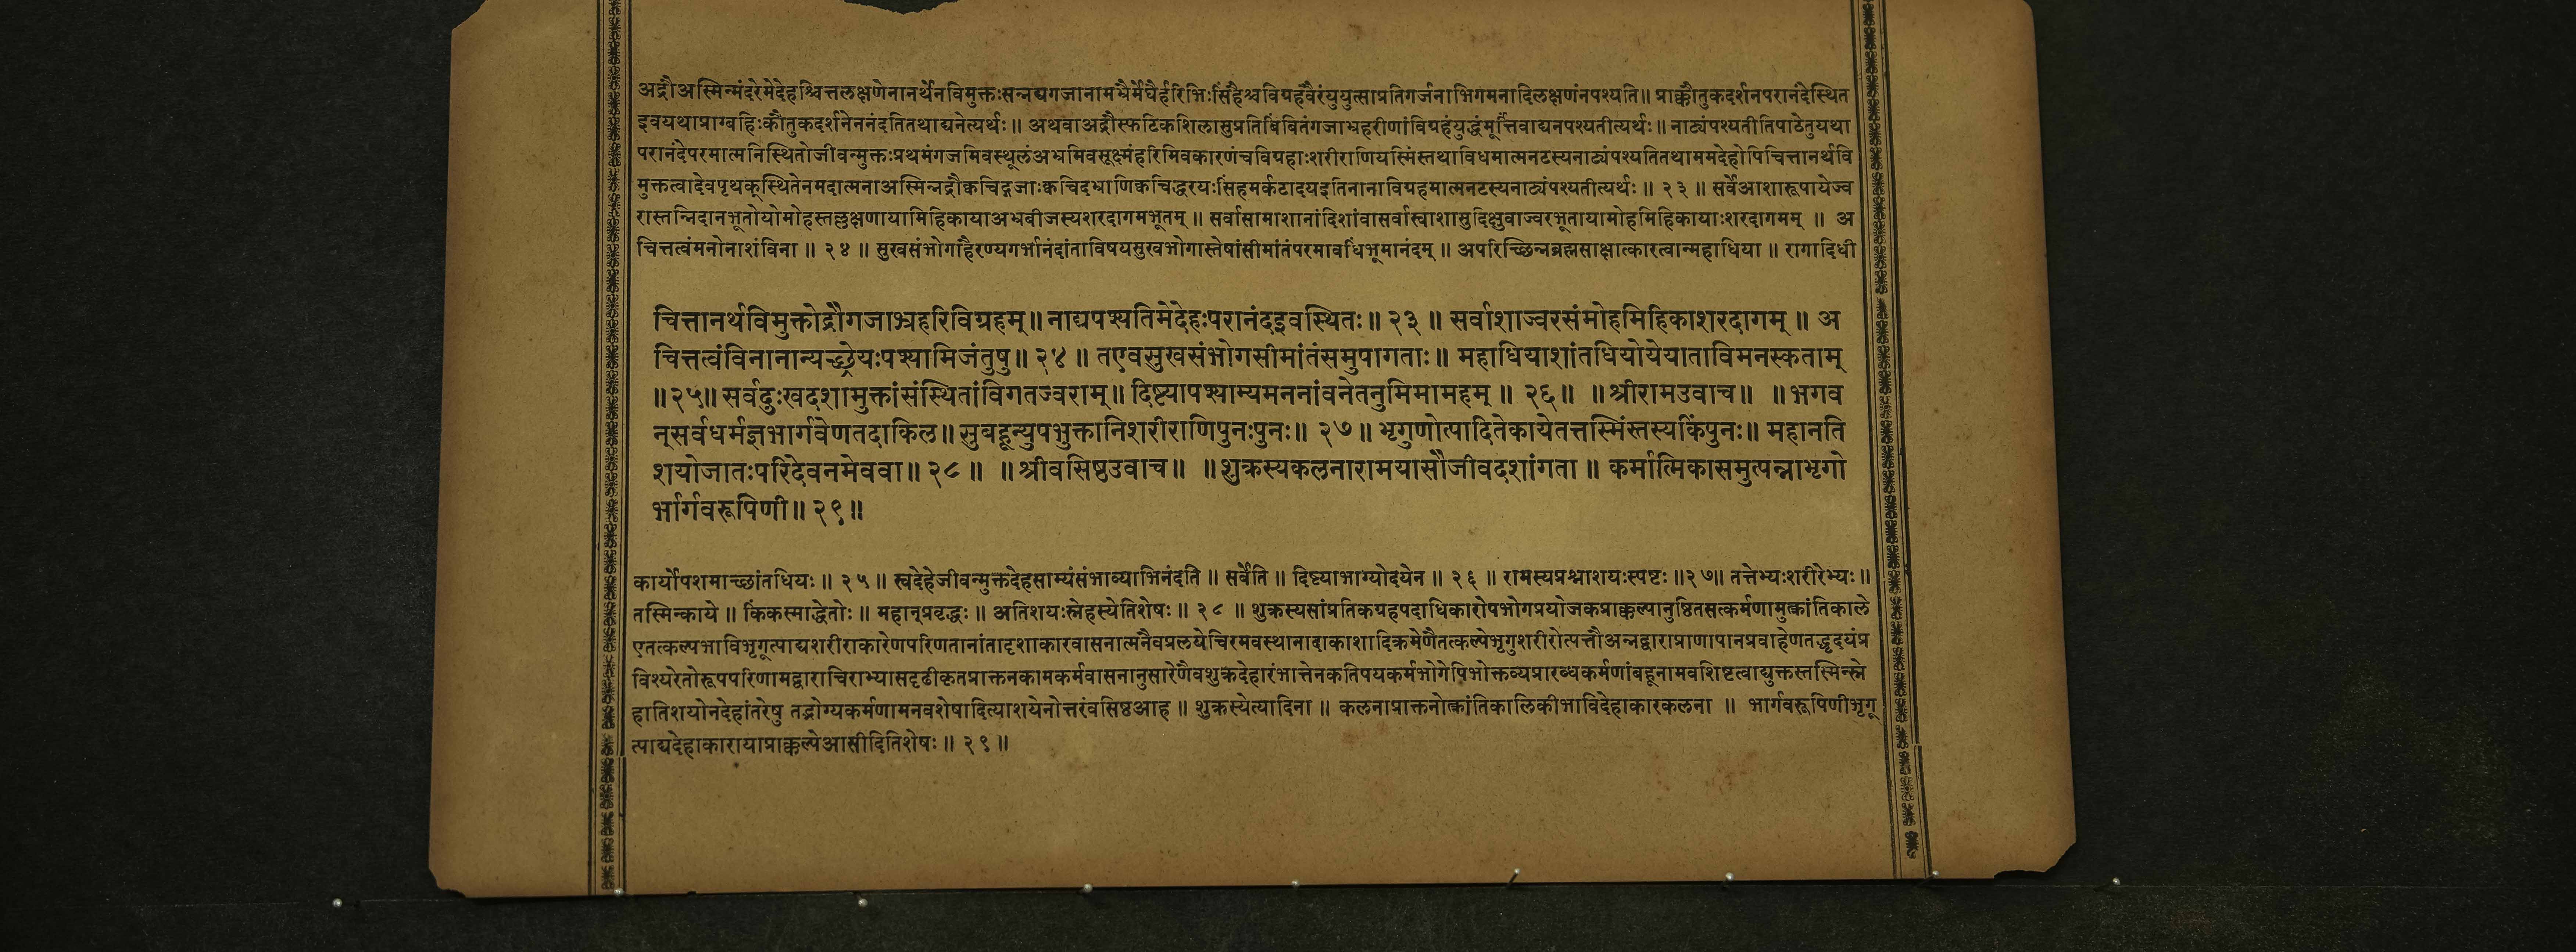 अद्रौअस्मिन्मंदरेमेदेहश्चित्तलक्षणेनानर्थेनविमुक्तःसन्नद्यगजानामभ्रैर्मेघैर्हरिभिःसिंहैश्चविग्रहंवैरंयुयुत्साप्रतिगर्जनाभिगमनादिलक्षणंनपश्यति॥ प्राक्कौतुकदर्शनपरानंदेस्थित
इवयथाप्राग्बहिःकौतुकदर्शनेननंदतितथाद्यनेत्यर्थः॥ अथवाअद्रौस्फटिकशिलासुप्रतिबिंबितंगजाभ्रहरीणांविग्रहंयुद्धंमूर्त्तिंवाद्यनपश्यतीत्यर्थः॥ नाट्यंपश्यतीतिपाठेतुयथा
परानंदेपरमात्मनिस्थितोजीवन्मुक्तःप्रथमंगजमिवस्थूलंअभ्रमिवसूक्ष्मंहरिमिवकारणंचविग्रहाःशरीराणियस्मिंस्तथाविधमात्मनटस्यनाट्यंपश्यतितथाममदेहोपिचित्तानर्थवि
मुक्तत्वादेवपृथक्स्थितेनमदात्मनाअस्मिन्नद्रौक्वचिद्गजाःक्वचिदभ्राणिक्वचिद्धरयःसिंहमर्कटादयइतिनानाविग्रहमात्मनटस्यनाट्यंपश्यतीत्यर्थः॥ २३ ॥ सर्वेआशारूपायेज्व
रास्तन्निदानभूतोयोमोहस्तल्लक्षणायामिहिकायाअभ्रबीजस्यशरदागमभूतम् ॥ सर्वासामाशानांदिशांवासर्वास्वाशासुदिक्षुवाज्वरभूतायामोहमिहिकायाःशरदागमम् ॥ अ
चित्तत्वंमनोनाशंविना ॥ २४ ॥ सुखसंभोगाहैरण्यगर्भानंदांताविषयसुखभोगास्तेषांसीमांतंपरमावधिंभूमानंदम् ॥ अपरिच्छिन्नब्रह्मसाक्षात्कारत्वान्महाधिया ॥ रागादिधी
चित्तानर्थविमुक्तोद्रौगजाभ्रहरिविग्रहम्॥ नाद्यपश्यतिमेदेहःपरानंदइवस्थितः॥ २३ ॥ सर्वाशाज्वरसंमोहमिहिकाशरदागमम् ॥ अ
चित्तत्वंविनानान्यच्छ्रेयःपश्यामिजंतुषु॥ २४ ॥ तएवसुखसंभोगसीमांतंसमुपागताः॥ महाधियाशांतधियोयेयाताविमनस्कताम्
॥२५॥ सर्वदुःखदशामुक्तांसंस्थितांविगतज्वराम्॥ दिष्ट्यापश्याम्यमननांवनेतनुमिमामहम् ॥ २६॥ ॥श्रीरामउवाच॥ ॥भगव
न्सर्वधर्मज्ञभार्गवेणतदाकिल॥ सुबहून्युपभुक्तानिशरीराणिपुनःपुनः॥ २७ ॥ भृगुणोत्पादितेकायेतत्तस्मिंस्तस्यकिंपुनः॥ महानति
शयोजातःपरिदेवनमेववा॥ २८ ॥ ॥श्रीवसिष्ठउवाच॥ ॥शुक्रस्यकलनारामयासौजीवदशांगता ॥ कर्मात्मिकासमुत्पन्नाभृगो
र्भार्गवरूपिणी॥ २९॥
कार्योपशमाच्छांतधियः॥ २५ ॥ स्वदेहेजीवन्मुक्तदेहसाम्यंसंभाव्याभिनंदति ॥ सर्वेति ॥ दिष्ट्याभाग्योदयेन ॥ २६ ॥ रामस्यप्रश्नाशयःस्पष्टः ॥२७॥ तत्तेभ्यःशरीरेभ्यः॥
तस्मिन्काये ॥ किंकस्माद्धेतोः ॥ महान्प्रवृद्धः ॥ अतिशयःस्नेहस्येतिशेषः ॥ २८ ॥ शुक्रस्यसांप्रतिकग्रहपदाधिकारोपभोगप्रयोजकप्राक्कल्पानुष्ठितसत्कर्मणामुत्क्रांतिकाले
एतत्कल्पभाविभृगूत्पाद्यशरीराकारेणपरिणतानांतादृशाकारवासनात्मनैवप्रलयेचिरमवस्थानादाकाशादिक्रमेणैतत्कल्पेभृगुशरीरोत्पत्तौअन्नद्वाराप्राणापानप्रवाहेणतद्धृदयंप्र
विश्यरेतोरूपपरिणामद्वाराचिराभ्यासदृढीकृतप्राक्तनकामकर्मवासनानुसारेणैवशुक्रदेहारंभात्तेनकतिपयकर्मभोगेपिभोक्तव्यप्रारब्धकर्मणांबहूनामवशिष्टत्वाद्युक्तस्तस्मिन्स्ने
हातिशयोनदेहांतरेषु तद्भोग्यकर्मणामनवशेषादित्याशयेनोत्तरंवसिष्ठआह ॥ शुक्रस्येत्यादिना ॥ कलनाप्राक्तनोत्क्रांतिकालिकीभाविदेहाकारकलना ॥ भार्गवरूपिणीभृगू
त्पाद्यदेहाकारायाप्राक्कल्पेआसीदितिशेषः॥ २९॥